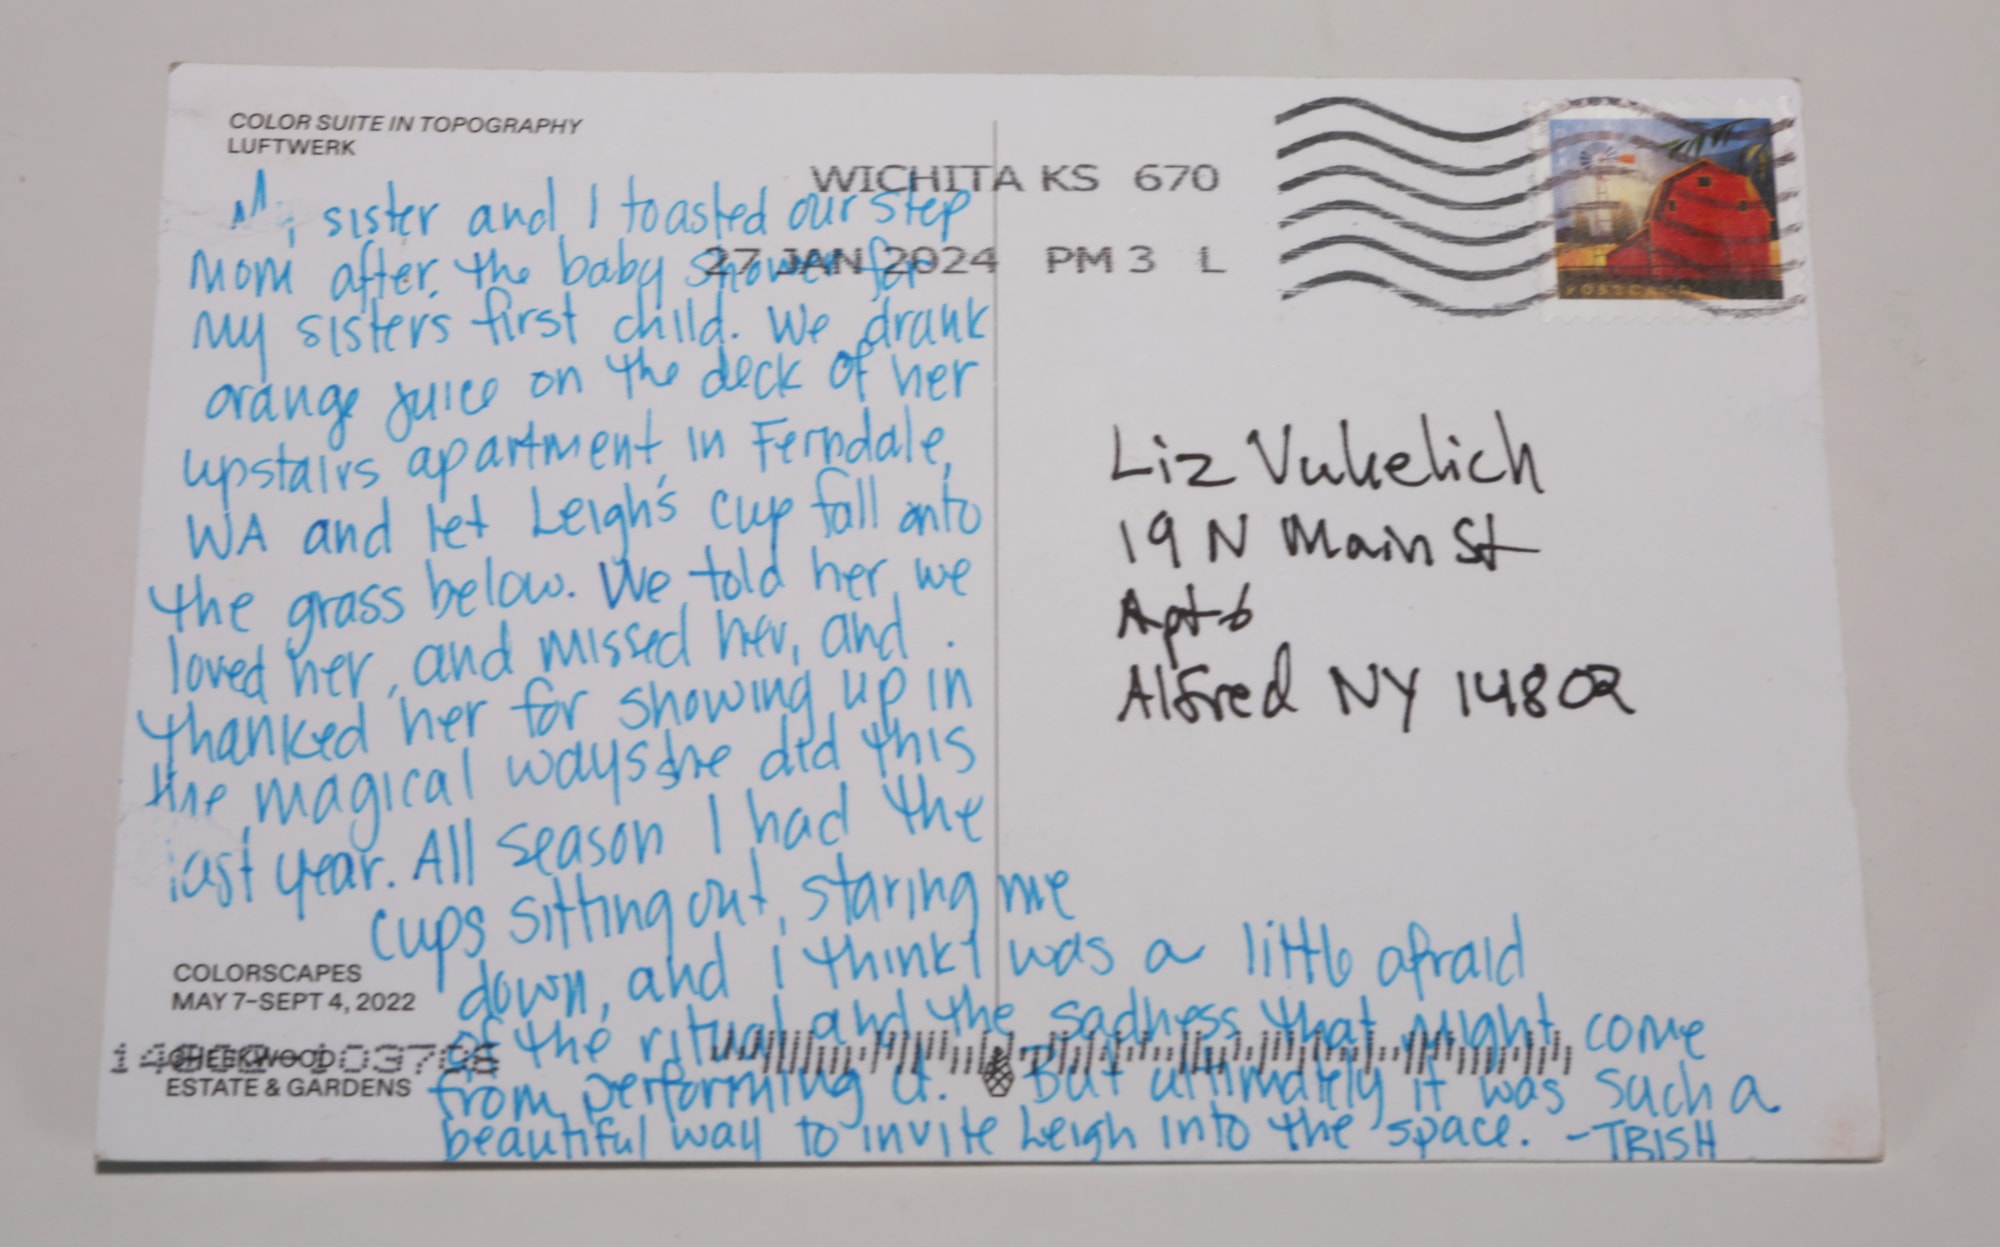 COLOR SUITE IN TOPOGRAPHY
LUFTWERK
WICHITA KS 670
27 JAN 2024 PM 3 L
POSTCARD
My sister and I toasted our step
Mom after the baby shower for
my sisters first child. We drank
orange juice on the deck of her
upstairs apartment in Ferndale,
WA and let Leigh's cup fall onto
the grass below. We told her we
loved her, and missed her, and
thanked her for showing up in
the magical ways she did this
last year. All season I had the
cups sitting out, staring me
down, and I think I was a little afraid
of the ritual and the sadness that might come
from performing it. But ultimately it was such a
beautiful way to invite Leigh into the space. -TRISH
Liz Vukelich
19 N Main St
Apt 6
Alfred NY 14802
COLORSCAPES
MAY 7-SEPT 4, 2022
CHEEKWOOD
ESTATE & GARDENS